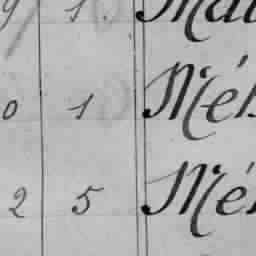 9 1 Mal
0 1 Mél
2 5 Mél